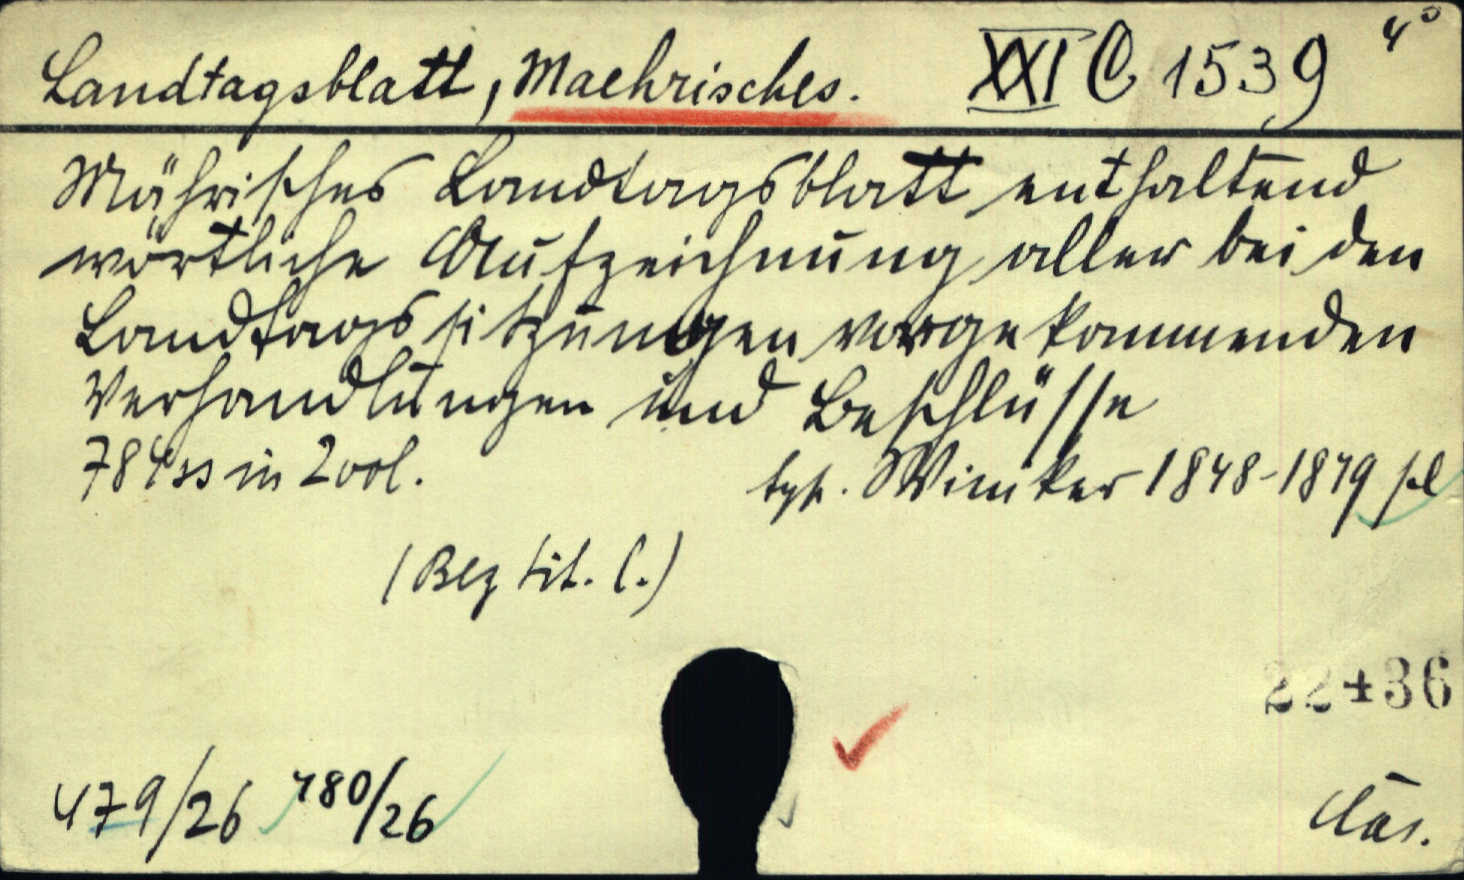 Landtagsblatt, Maehrisches. XXI C 1539 4°
Mährisches Landtagsblatt enthaltend
wörtliche Aufzeichnung aller bei den
Landtagssitzungen vorgekommenden
Verhandlungen und Beschlüsse
784 ss in 2 vol.
typ. Winiker 1848-1849
(Bez tit. l.)
22436
479/26 480/26
čas.